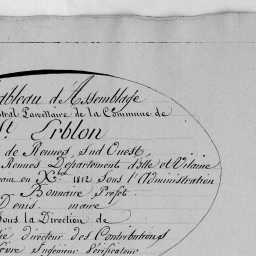 ableau d'Assemblage
tral Parcellaire de la Commune de
St Erblon
de Rennes, sud Ouest,
Rennes Département d'Ille et Vilaine
en Xbre 1812 Sous l'Administration
Bonnaire Préfet
Denis maire
Sous la Direction de
directeur des Contributions
Ingénieur Vérificateur